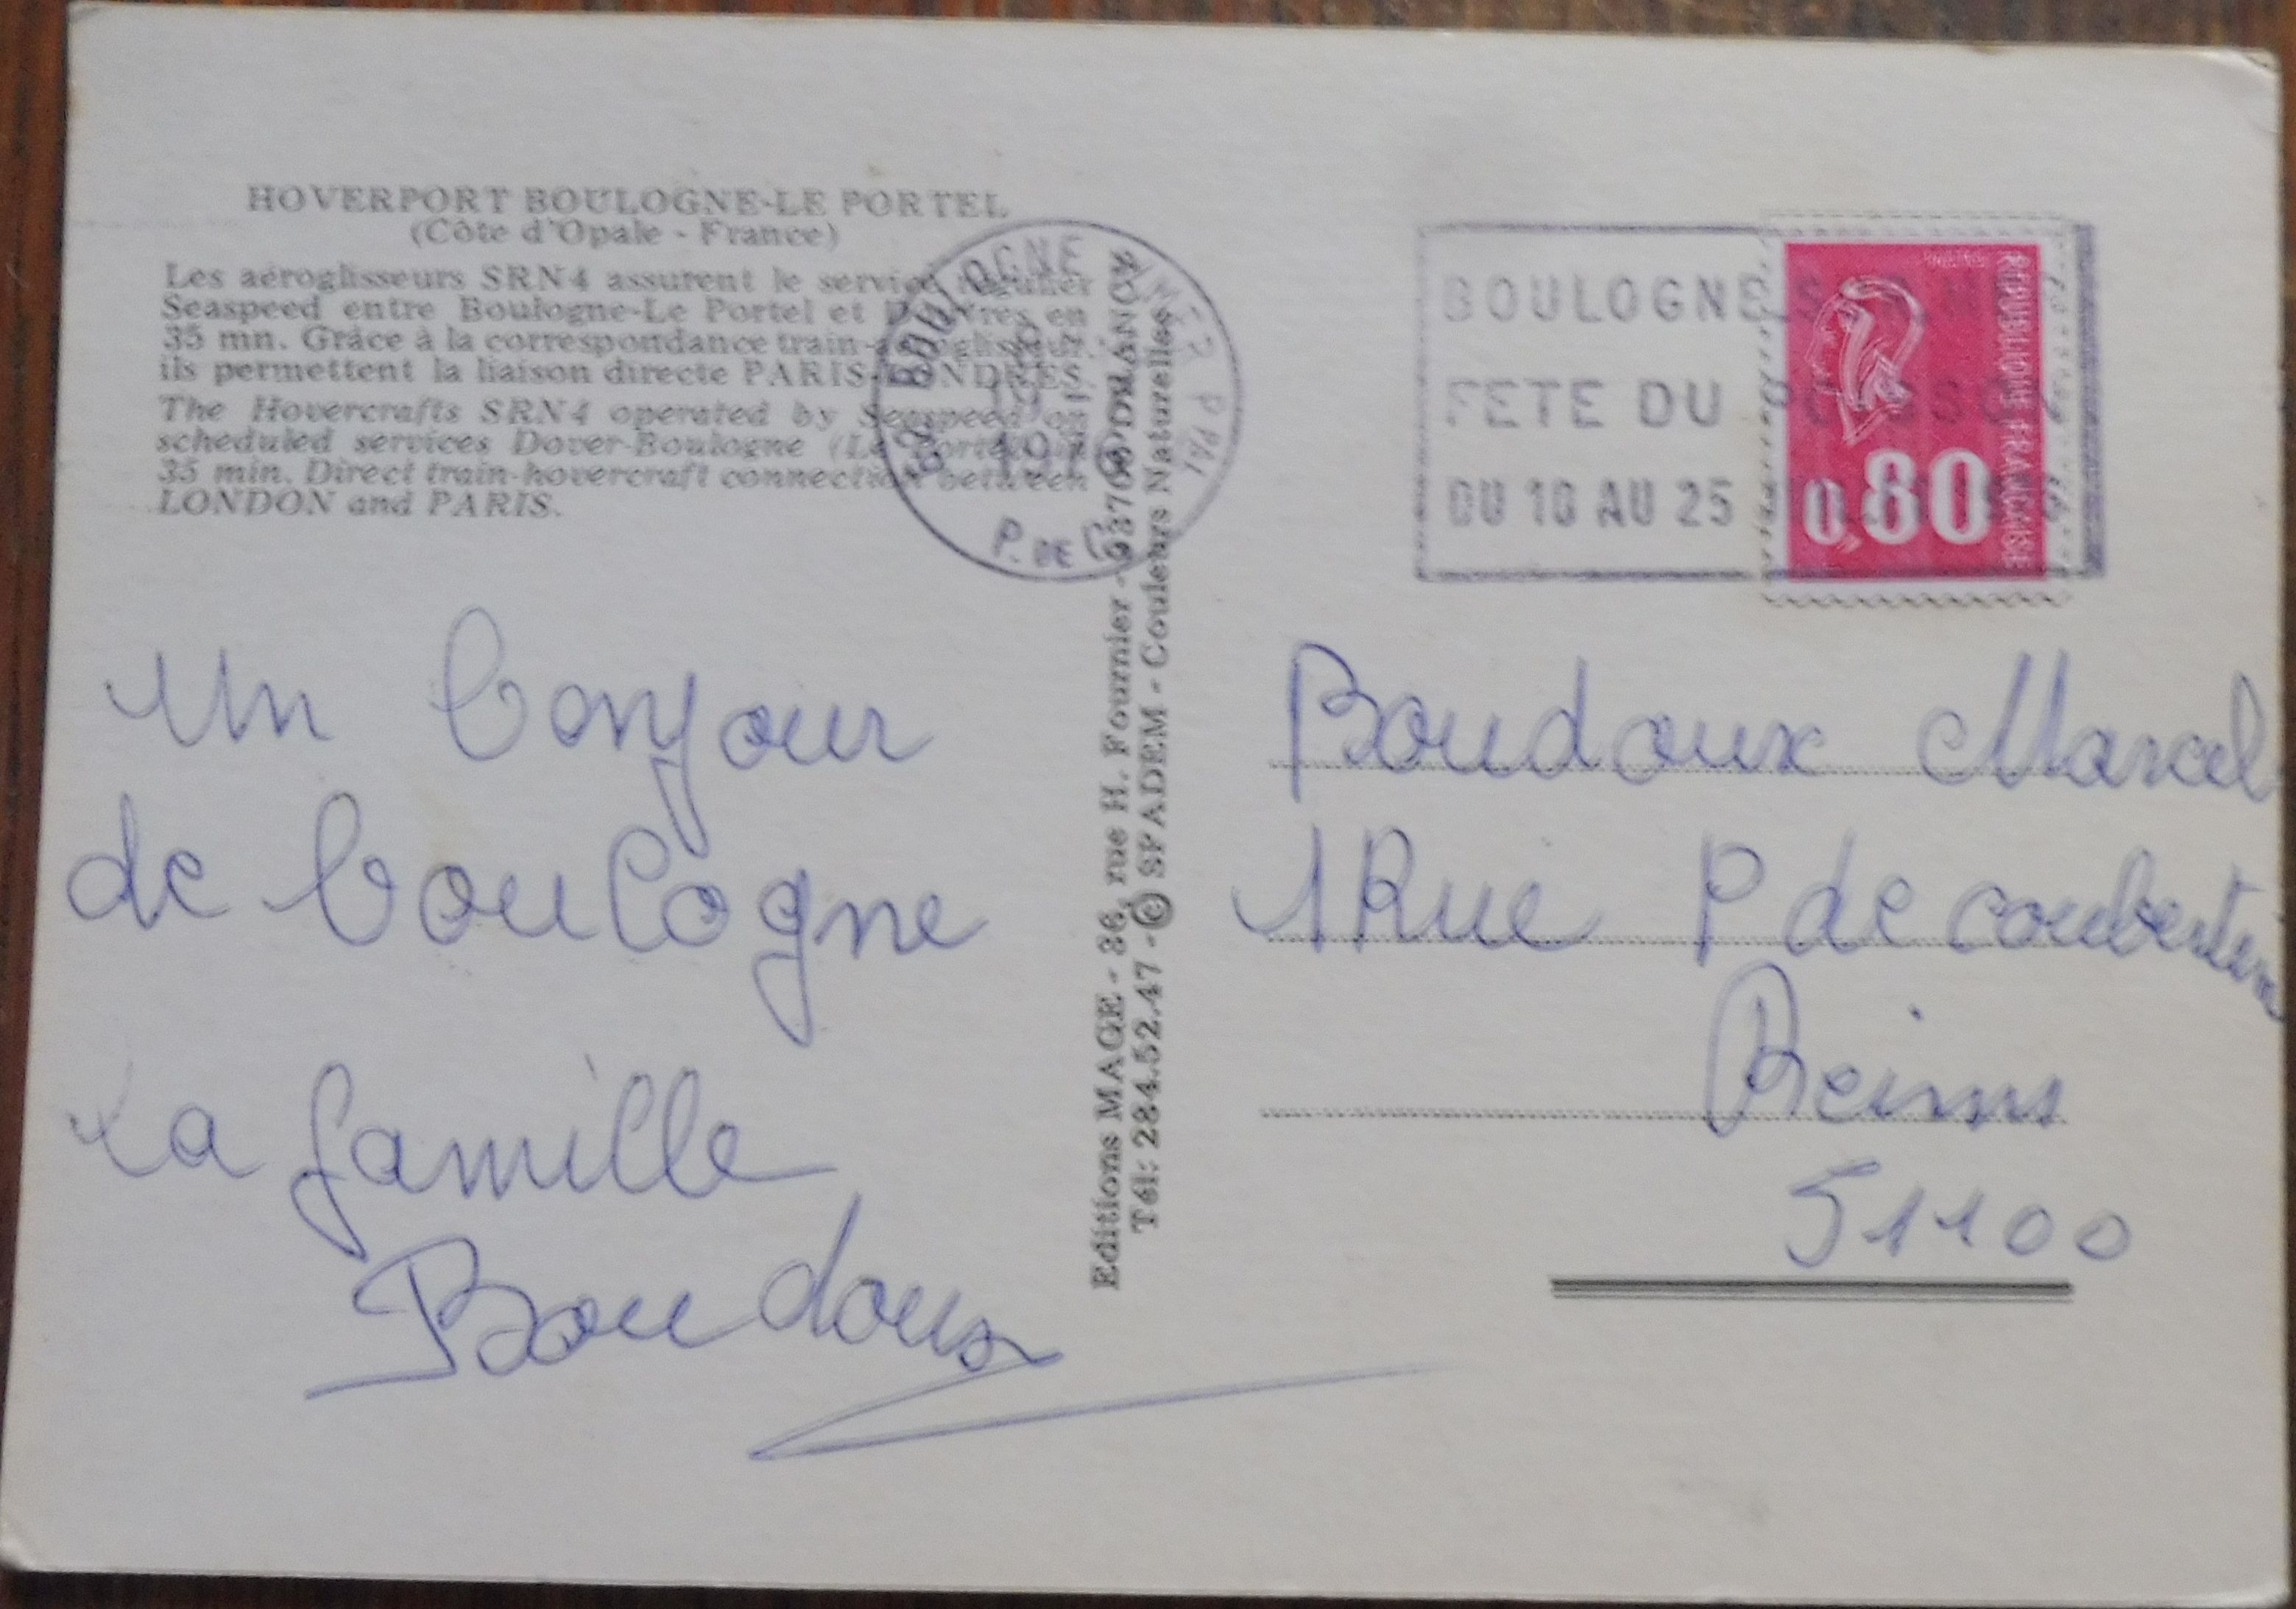 HOVERPORT BOULOGNE-LE PORTEL
(Côte d'Opale - France)
Les aéroglisseurs SRN4 assurent le service régulier
Seaspeed entre Boulogne-Le Portel et Douvres en
35 mn. Grâce à la correspondance train-aéroglisseur,
ils permettent la liaison directe PARIS-LONDRES.
The Hovercrafts SRN4 operated by Seaspeed on
scheduled services Dover-Boulogne (Le Portel) in
35 min. Direct train-hovercraft connection between
LONDON and PARIS.
62 BOULOGNE S MER P PAL
P. DE C.
BOULOGNE S MER
FETE DU POISSON
DU 10 AU 25
REPUBLIQUE FRANCAISE
0,80
Un bonjour
de boulogne
La famille
Boudoux
Editions MAGE - 36, rue H. Fournier - 93700 DRANCY
Tél: 284.52.47 - © SPADEM - Couleurs Naturelles
Boudoux Marcel
1 Rue P de coubertin
Reims
51100